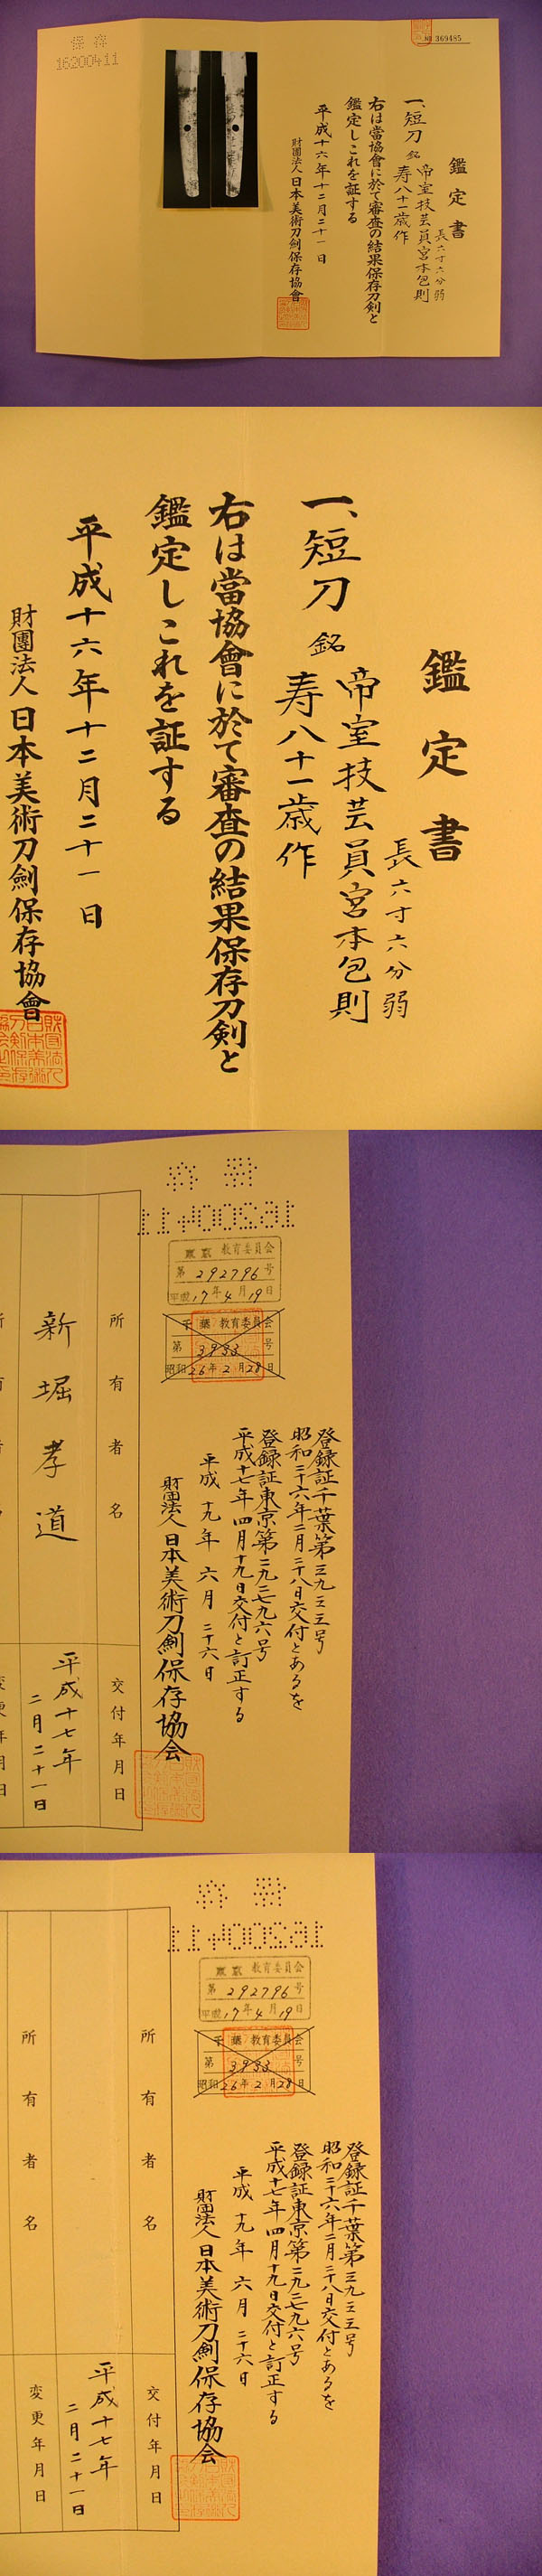 保存
16200411
No 369485
鑑定書
長六寸六分弱
一、短刀 銘 帝室技芸員宮本包則
寿八十一歳作
右は當協會に於て審査の結果保存刀剣と
鑑定しこれを証する
平成十六年十二月二十一日
財團法人日本美術刀劍保存協會
鑑定書
長六寸六分弱
一、短刀 銘 帝室技芸員宮本包則
寿八十一歳作
右は當協會に於て審査の結果保存刀剣と
鑑定しこれを証する
平成十六年十二月二十一日
財團法人日本美術刀劍保存協會
東京 教育委員会
第292796号
平成17年4月19日
千葉 教育委員会
第3933号
昭和26年2月28日
登録証千葉第三九三三号
昭和二十六年二月二十八日交付とあるを
登録証東京第二九二七九六号
平成十七年四月十九日交付と訂正する
平成十九年六月二十六日
財団法人日本美術刀剣保存協会
所有者名
新堀孝道
交付年月日
平成十七年
二月二十一日
東京 教育委員会
第292796号
平成17年4月19日
千葉 教育委員会
第3933号
昭和26年2月28日
登録証千葉第三九三三号
昭和二十六年二月二十八日交付とあるを
登録証東京第二九二七九六号
平成十七年四月十九日交付と訂正する
平成十九年六月二十六日
財団法人日本美術刀剣保存協会
所有者名
交付年月日
平成十七年
二月二十一日
所有者名
変更年月日